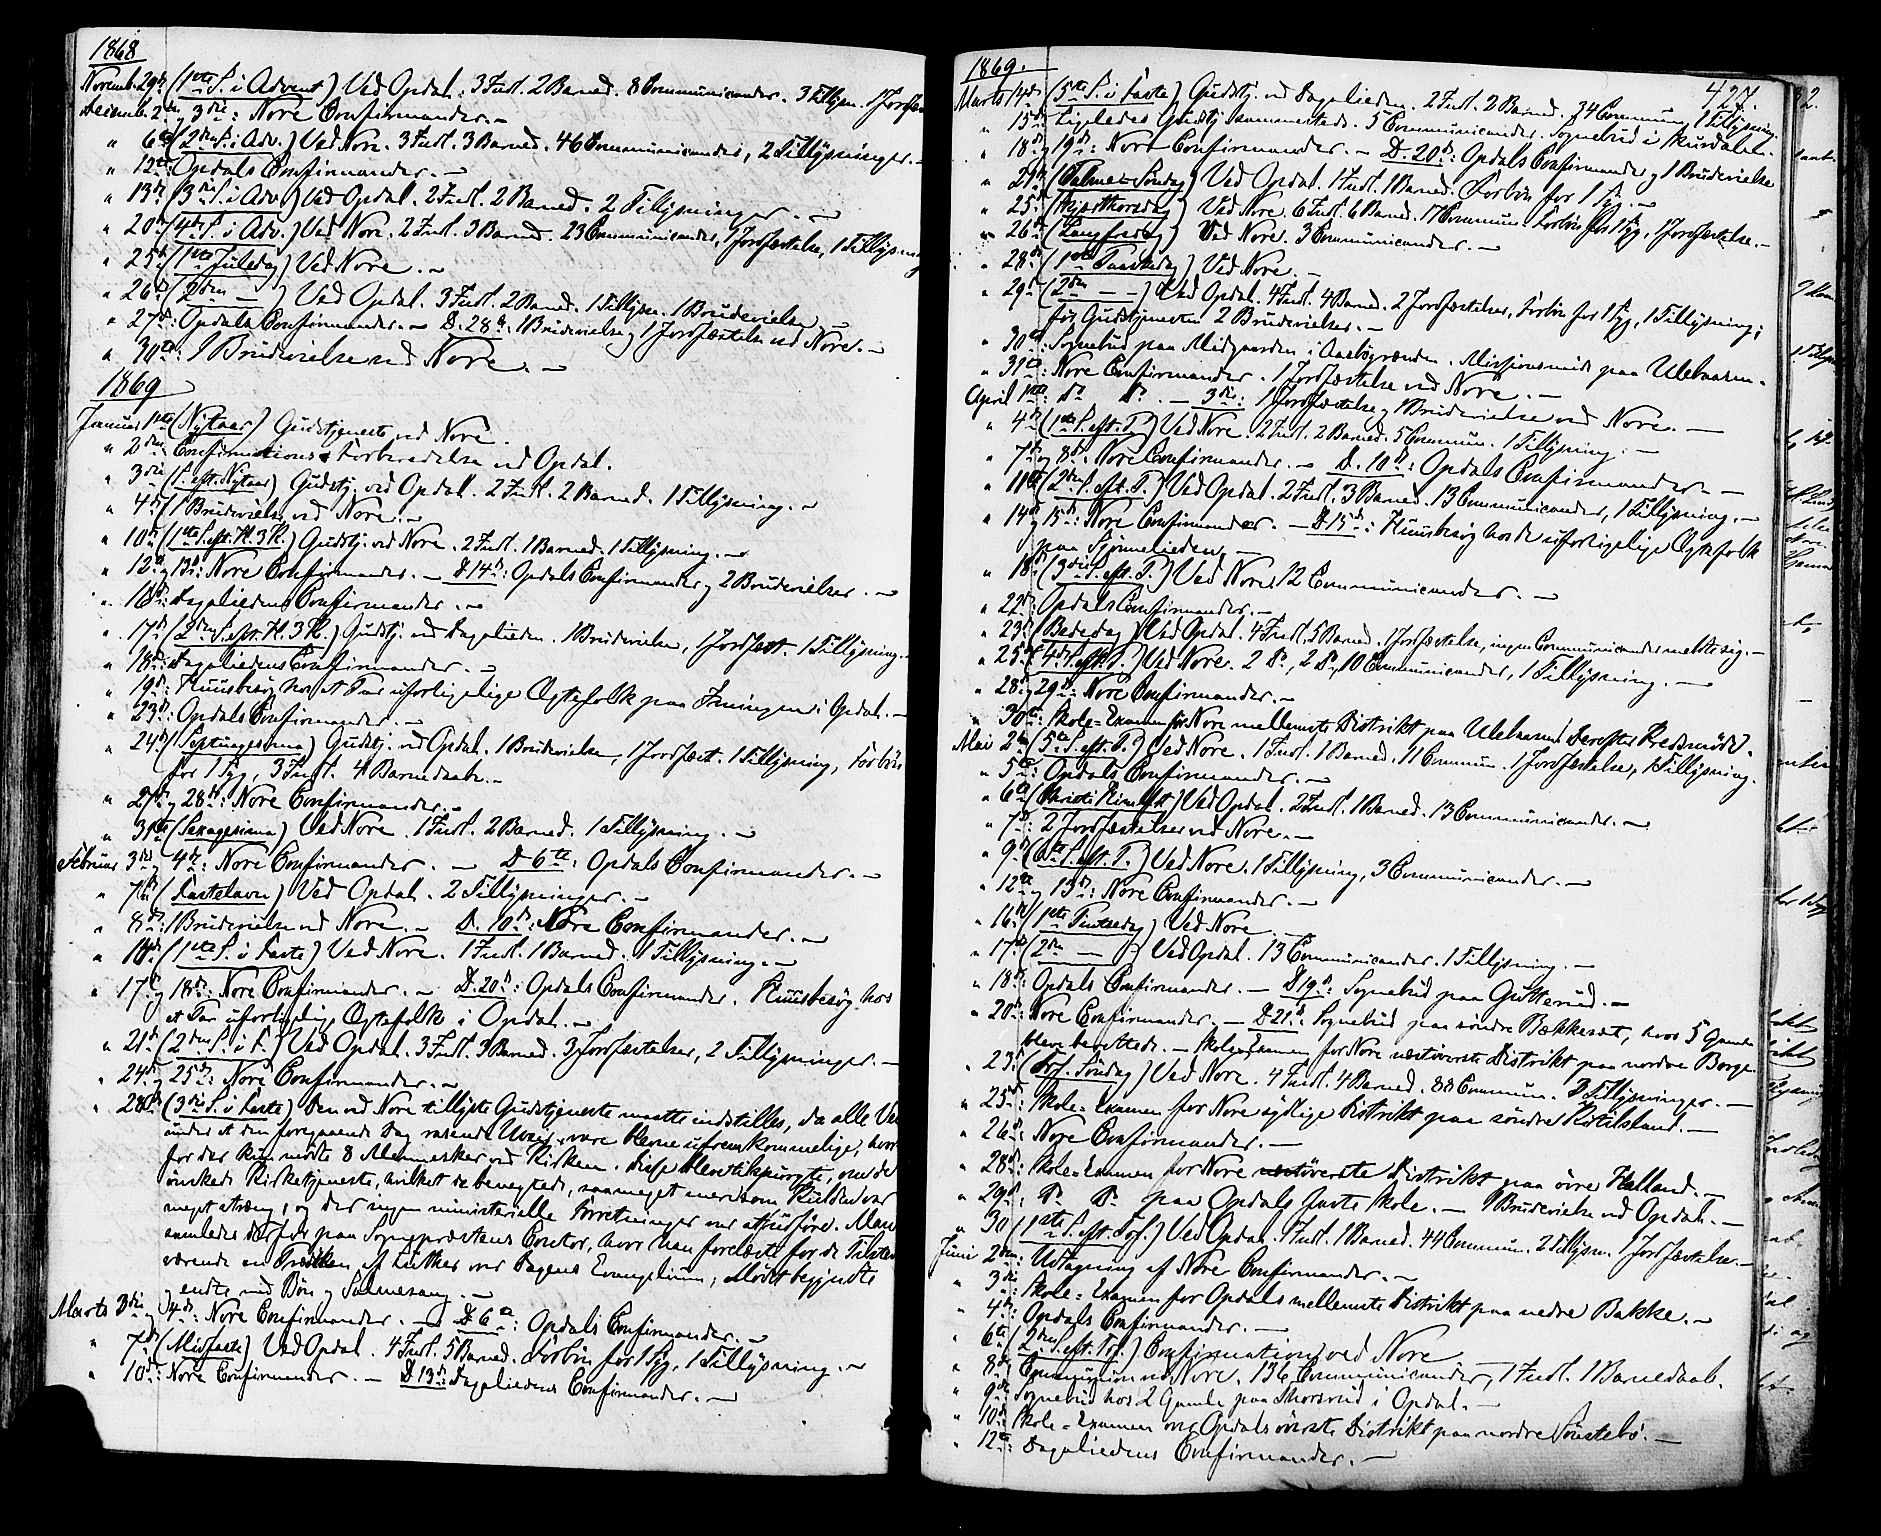 1868
Novemb. 29de (1ste S. i Advent) Ved Opdal. 3 Indl. 2 Barned. 8 Communicander. 3 Tillysn. 1 Jordfæs
Decemb. 2den og 3die: Nore Confirmander. —
" 6te (2den S. i Adv.) Ved Nore. 3 Indl. 3 Barned. 46 Communicander, 2 Tillysninger. —
" 12te Opdals Confirmander. —
" 13de (3die S. i Adv.) Ved Opdal. 2 Indl. 2 Barned. 2 Tillysninger. —
" 20de (4de S. i Adv.) Ved Nore. 2 Indl. 3 Barned. 23 Communicander, 1 Jordfæstelse, 1 Tillysning
" 25de (1ste Juledag) Ved Nore. —
" 26de (2den —) Ved Opdal. 3 Indl. 2 Barned. 1 Tillysn. 1 Brudevielse —
" 27de: Opdals Confirmander. — D. 28de: 1 Brudevielse og 1 Jordfæstelse ved Nore. —
" 30te: 1 Brudevielse ved Nore. —
1869
Januar 1ste (Nytaar) Gudstjeneste ved Nore.
" 2den Confirmations Forberedelse ved Opdal.
" 3die (S. eft. Nytaar) Gudstj. ved Opdal. 2 Indl. 2 Barned. 1 Tillysning. —
" 4de 1 Brudevielse ved Nore. —
" 10de (1ste S. eft. H. 3 K.) Gudstj. ved Nore. 2 Indl. 1 Barned. 1 Tillysning. —
" 12te og 13de: Nore Confirmander. — D. 14de: Opdals Confirmander og 2 Brudevielser. —
" 16de: Dagaliedens Confirmander. —
" 17de (2den S. eft. H. 3 K.) Gudstj. ved Dagalieden. 1 Brudevielse, 1 Jordfæst. 1 Tillysning. —
" 18de: Dagaliedens Confirmander. —
" 19de: Huusbesøg hos et Par uforligelige Ægtefolk paa i Opdal. —
" 23de: Opdals Confirmander. —
" 24de (Septuagesima) Gudstj. ved Opdal. 1 Brudevielse, 1 Jordfæst. 1 Tillysning, Forbön
for 1 Syg, 3 Indl. 4 Barnedaab. —
" 27de og 28de: Nore Confirmander. —
" 31te (Sexagesima) Ved Nore. 1 Indl. 2 Barned. 1 Tillysning. —
Februar 3die og 4de: Nore Confirmander. — D. 6te: Opdals Confirmander. —
" 7de (Fastelavn) Ved Opdal. 2 Tillysninger. —
" 8de: 1 Brudevielse ved Nore. — D. 10de: Nore Confirmander. —
" 14de (1ste S. i Faste) Ved Nore. 1 Indl. 1 Barned. 1 Tillysning. —
" 17de og 18de: Nore Confirmander. — D. 20de: Opdals Confirmander. Huusbesøg hos
et Par uforligelige Ægtefolk i Opdal. —
" 21de (2den S. i F.) Ved Opdal. 3 Indl. 3 Barned. 3 Jordfæstelser, 2 Tillysninger. —
" 24de og 25de: Nore Confirmander. —
" 28de (3die S. i Faste) Den ved Nore tillyste Gudstjeneste maatte indstilles, da alle Veie
under et den foregaaende Dag rasende Uveir vare blevne ufremkommelige, hvor
for der kun mødte 8 Mennesker ved Kirken. Disse bleve adspurgte, om de
ønskede Kirketjeneste, hvilket de benegtede, saameget mere som Kulden var
meget streng, og der ingen ministerielle Forretninger var at udføre. Man
samledes derfor paa Sognepræstens Contor, hvor han forelæste for de Tilstede
værende en Prædiken af Luther over Dagens Evangelium, Mødet begyndte
og endte med Bön og Salmesang. —
Marts 3die og 4de: Nore Confirmander. — D. 6te: Opdals Confirmander. —
" 7de (Midfaste) Ved Opdal. 4 Indl. 5 Barned. Forbön for 1 Syg, 1 Tillysning. —
" 10de: Nore Confirmander. — D. 13de: Dagaliedens Confirmander. —
1869.
427.
Marts 14de (5te S. i Faste) Gudstj. ved Dagalieden. 2 Indl. 2 Barned. 34 Commun. 1 Tillysning.
" 15de Ligeledes Gudstj. sammesteds. 5 Communicander. Sognebud i Skurdalen.
" 18de og 19de: Nore Confirmander. — D. 20de: Opdals Confirmander og 1 Brudevielse
" 21de (Palme-Søndag) Ved Opdal. 1 Indl. 1 Barned. Forbön for 1 Syg. —
" 25de (Skjærthorsdag) Ved Nore. 6 Indl. 6 Barned. 17 Commun. Forbön for 1 Syg, 1 Jordfæstelse. —
" 26de (Langfredag) Ved Nore. 3 Communicander. —
" 28de (1ste Paaskedag) Ved Nore. —
" 29de (2den — —) Ved Opdal. 4 Indl. 4 Barned. 2 Jordfæstelser, Forbön for 1 Syg, 1 Tillysning;
før Gudstjenesten 2 Brudevielser. —
" 30te: Sognebud paa Midgaarden i . Missionsmøde paa Ulebaasen.
" 31te: Nore Confirmander. 1 Jordfæstelse ved Nore. —
April 1ste: Do Do. — 3die: 1 Jordfæstelse og 1 Brudevielse ved Nore. —
" 4de (1ste S. eft. P.) Ved Nore. 2 Indl. 2 Barned. 5 Commun. 1 Tillysning. —
" 7de og 8de: Nore Confirmander. — D. 10de: Opdals Confirmander. —
" 11te (2den S. eft. P.) Ved Opdal. 2 Indl. 3 Barned. 13 Communicander, 1 Tillysning. —
" 14de og 15de: Nore Confirmander. — D. 15de: Huusbesøg hos de uforligelige Ægtefolk
paa Sjønnelieden. —
" 18de (3die S. eft. P.) Ved Nore, 12 Communicander. —
" 22de: Opdals Confirmander. —
" 23de (Bededag) Ved Opdal. 4 Indl. 5 Barned. 1 Jordfæstelse, ingen Communicander meldte sig. —
" 25de (4de S. eft. P.) Ved Nore. 2 Do, 2 Do, 10 Communicander, 1 Tillysning. —
" 28de og 29de: Nore Confirmander. —
" 30te: Skole-Examen for Nore mellemste Distrikt paa Ulebaasen; derefter Kredsmøde.
Mai 2den (5te S. eft. P.) Ved Nore. 1 Indl. 1 Barned. 11 Commun. 1 Jordfæstelse, 1 Tillysning.
" 5te: Opdals Confirmander. —
" 6te (Christi Himlfst) Ved Opdal. 2 Indl. 1 Barned. 13 Communicander. —
" 7de: 2 Jordfæstelser ved Nore. —
" 9de (6te S. eft. P.) Ved Nore. 1 Tillysning, 3 Communicander. —
" 12te og 13de: Nore Confirmander. —
" 16de (1ste Pintsedag) Ved Nore. —
" 17de (2den —) Ved Opdal. 13 Communicander. 1 Tillysning. —
" 18de: Opdals Confirmander. — D. 19de: Sognebud paa Gutterud. —
" 20de: Nore Confirmander. — D. 21de Sognebud paa søndre Bækkesæt, hvor 5 Gamle
bleve berettede. — Skole-Examen for Nore næstøverste Distrikt paa nordre Borge.
" 23de (Tref. Söndag) Ved Nore. 4 Indl. 4 Barned. 88 Commun. 3 Tillysninger. —
" 25de: Skole-Examen for Nore sydlige Distrikt paa søndre . —
" 26de: Nore Confirmander. —
" 28de: Skole-Examen for Nore øverste Distrikt paa øvre Halland. —
" 29de: Do Do paa Opdals faste Skole. — 1 Brudevielse ved Opdal. —
" 30 (1ste S. eft. Tref.) Ved Opdal. 1 Indl. 1 Barned. 44 Commun. 2 Tillysn. 1 Jordfæstelse. —
Juni 2den: Udtagning af Nore Confirmander. —
" 3die: Skole-Examen for Opdals mellemste Distrikt paa nedre Bakke. —
" 4de: Opdals Confirmander. —
" 6te (2den S. eft. Tref.) Confirmation ved Nore
" 8de Communion ved Nore, 136 Communicander, 1 Indl. 1 Barnedaab.
" 9de Sognebud hos 2 Gamle paa Thorsrud i Opdal. —
" 10de Skole-Examen for Opdals øverste Distrikt paa nordre Sønstebö. —
" 12te: Dagaliedens Confirmander. —